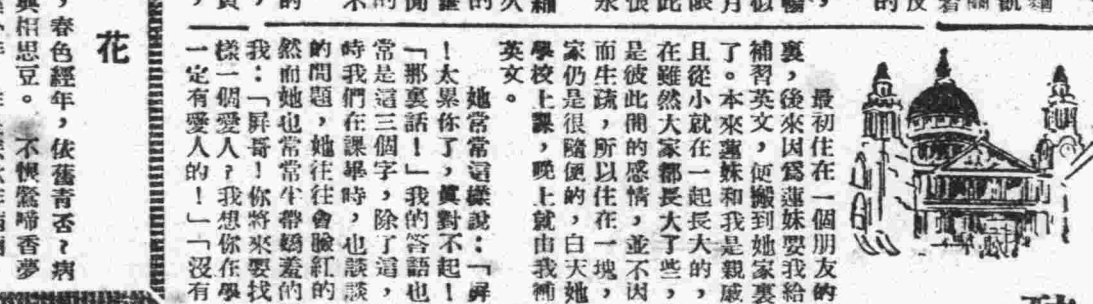 最初住在一個朋友的
裏,後來因爲蓮妹要我給
補習英文,便搬到她家裏
了。本來蓮妹和我是親戚
且從小就在一起長大的,
在雖然大家都長大了些,
是彼此間的感情,並不因
而生疏,所以住在一塊,
家仍是很隨便的,白天她
學校上課,晚上就由我補
英文。
她常常這樣說:「屏
!太累你了,眞對不起!
「那裏話!」我的答語也
常是這三個字,除了這,
時我們在課畢時,也談談
的問題,她往往會臉紅的
然而她也常常半帶嬌羞的
我:「屏哥!你將來要找
樣一個愛人?我想你在學
一定有愛人的!」「沒有
花
,春色經年,依舊青否?病
與相思豆。不恨鶯啼香夢